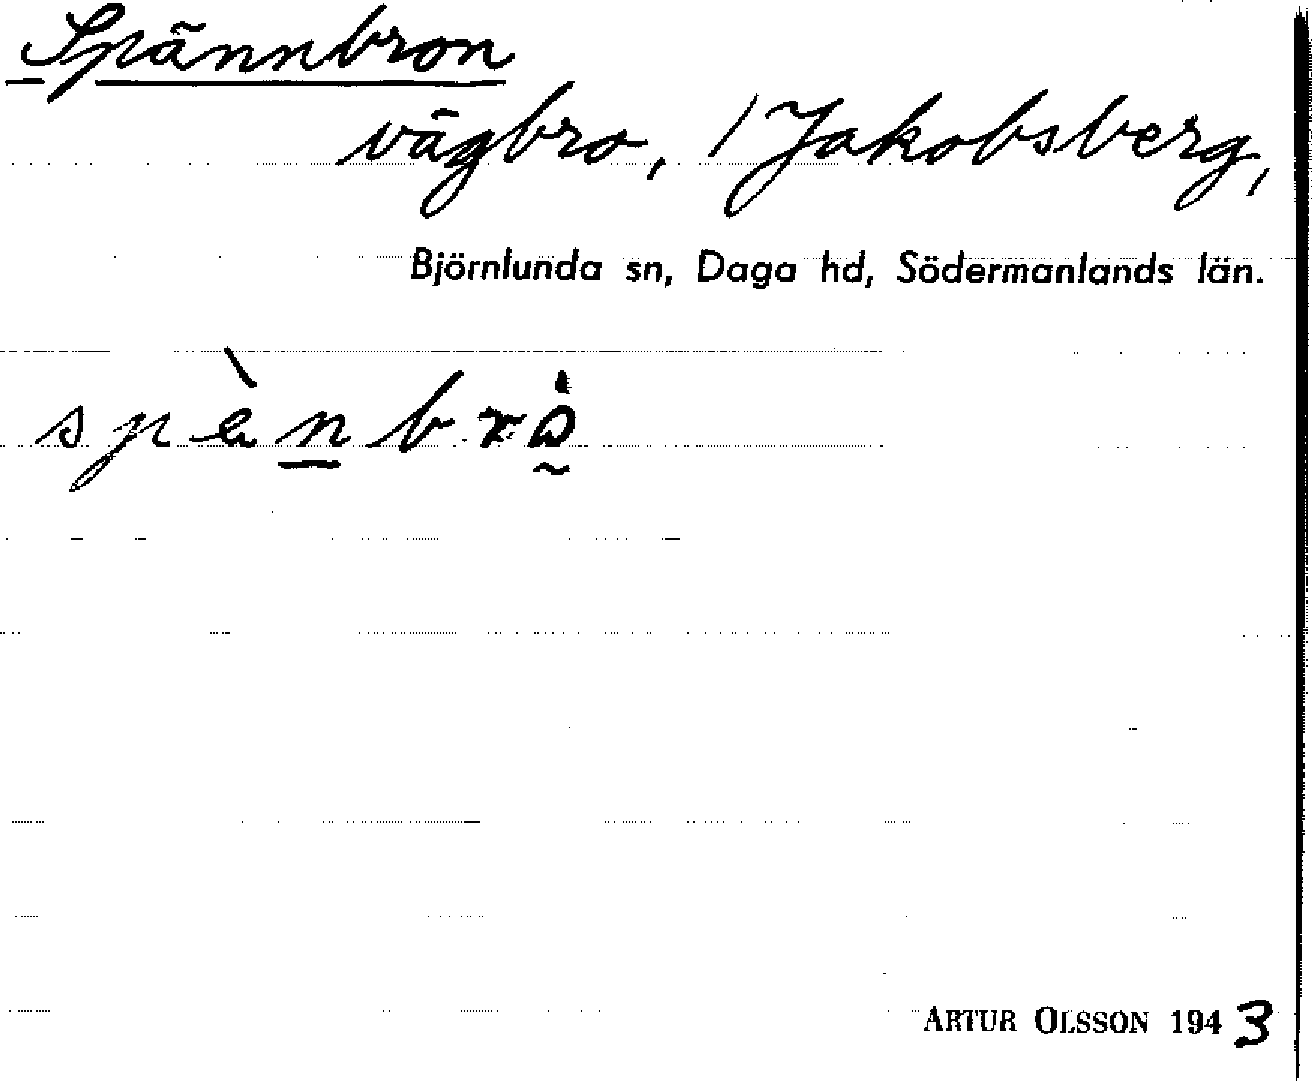 Spännbron
vägbro, / Jakobsberg,
Björnlunda sn, Daga hd, Södermanlands län.
ARTUR OLSSON 1943